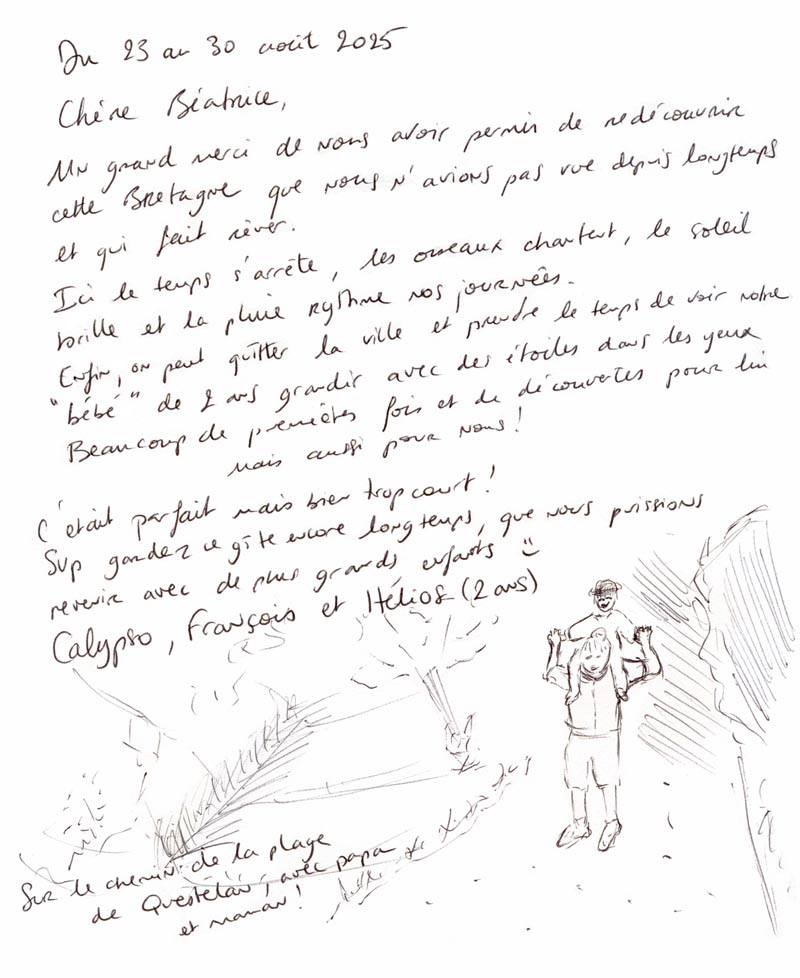 Du 23 au 30 août 2025
Chère Béatrice,
Un grand merci de nous avoir permis de redécouvrir
cette Bretagne que nous n'avions pas vue depuis longtemps
et qui fait rêver.
Ici le temps s'arrête, les oiseaux chantent, le soleil
brille et la pluie rythme nos journées.
Enfin, on peut quitter la ville et prendre le temps de voir notre
"bébé" de 2 ans grandir avec des étoiles dans les yeux
Beaucoup de premières fois et de découvertes pour lui
mais aussi pour nous!
C'était parfait mais bien trop court!
Svp gardez ce gîte encore longtemps, que nous puissions
revenir avec de plus grands enfants ☺
Calypso, François et Hélios (2 ans)
Sur le chemin de la plage
de Questelan, avec papa
et maman!